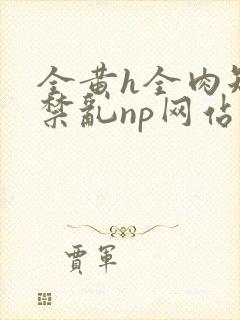 全黄h全肉短
禁乱np网估
贾军